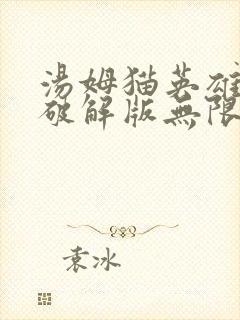 湯姆猫英雄
破解版無限
袁冰